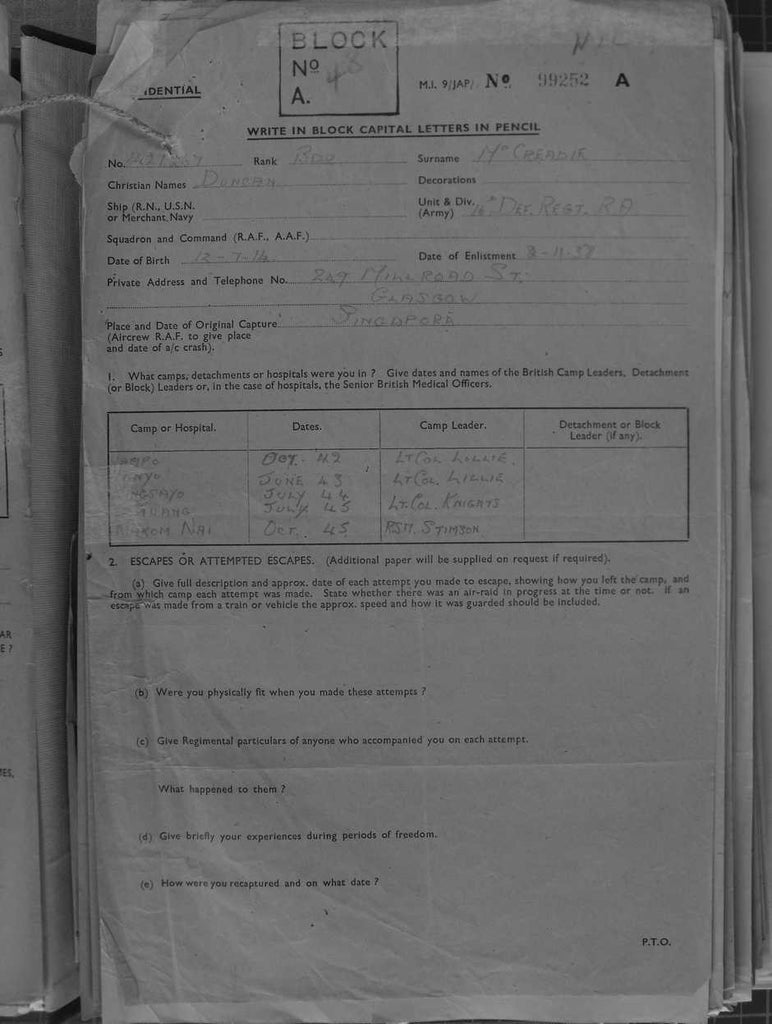 BLOCK
Nº 48
A.
NIL
IDENTIAL
M.I. 9/JAP/ Nº. 99252 A
WRITE IN BLOCK CAPITAL LETTERS IN PENCIL
No. Rank BDR Surname McCREADIE
Christian Names DUNCAN Decorations
Ship (R.N., U.S.N. or Merchant Navy Unit & Div. (Army) 16th DEF. REGT. R.A.
Squadron and Command (R.A.F., A.A.F.)
Date of Birth 12-7-14 Date of Enlistment 8-11-37
Private Address and Telephone No. 249 MILLROAD ST.
GLASGOW
Place and Date of Original Capture SINGAPORE
(Aircrew R.A.F. to give place
and date of a/c crash).
1. What camps, detachments or hospitals were you in ? Give dates and names of the British Camp Leaders, Detachment
(or Block) Leaders or, in the case of hospitals, the Senior British Medical Officers.
Camp or Hospital. Dates. Camp Leader. Detachment or Block
Leader (if any).
OCT. 42 LT COL. LILLIE.
JUNE 43 LT COL. LILLIE
JULY 44 LT. COL KNIGHTS
JULY 45
NAI OCT. 45 RSM. STIMSON
2. ESCAPES OR ATTEMPTED ESCAPES. (Additional paper will be supplied on request if required).
(a) Give full description and approx. date of each attempt you made to escape, showing how you left the camp, and
from which camp each attempt was made. State whether there was an air-raid in progress at the time or not. If an
escape was made from a train or vehicle the approx. speed and how it was guarded should be included.
(b) Were you physically fit when you made these attempts ?
(c) Give Regimental particulars of anyone who accompanied you on each attempt.
What happened to them ?
(d) Give briefly your experiences during periods of freedom.
(e) How were you recaptured and on what date ?
P.T.O.